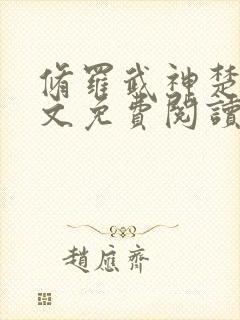 脩羅武神楚
文免費閱讀
趙應齊